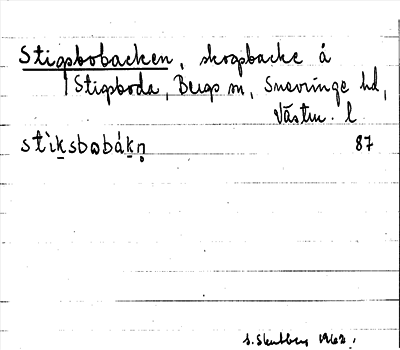 Stigsbobacken, skogsbacke å
Stigsboda, Bergs sn, Snevringe hd,
Västm. l.
stìksbωbákn̥ 87
S. Skuttberg 1962.